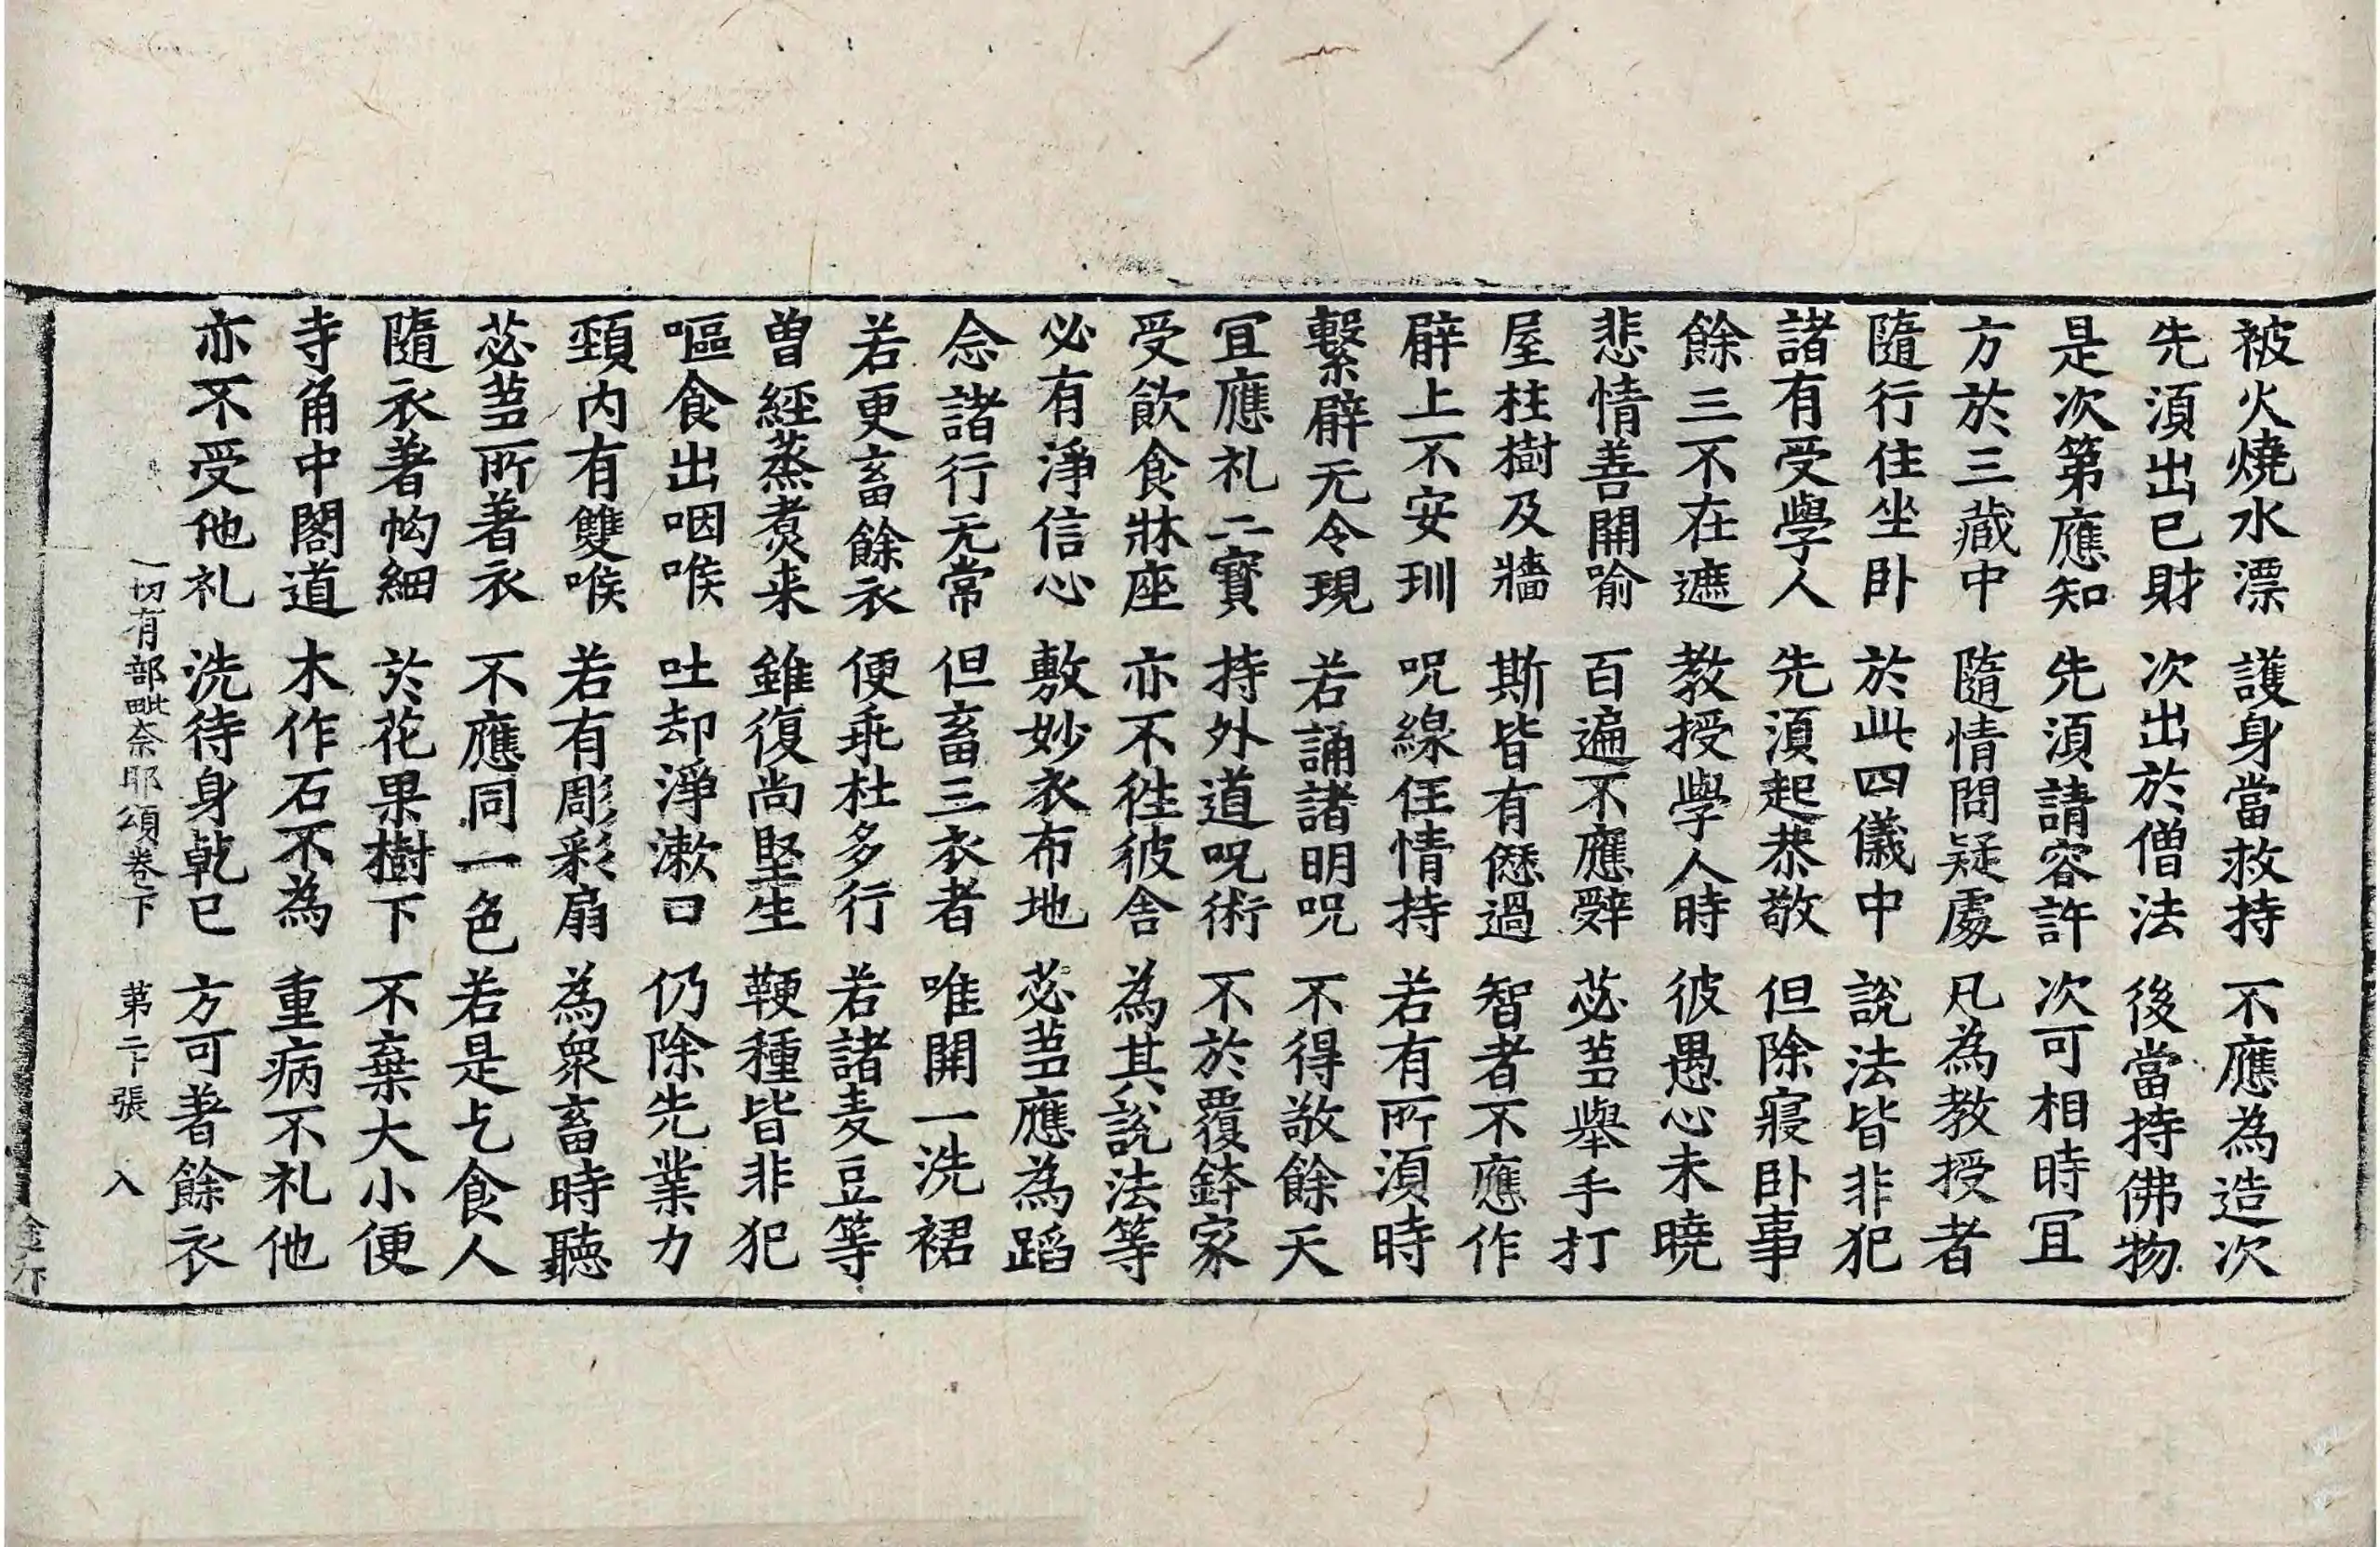 被火燒水漂　護身當救持　不應為造次
先湏出已財　次出於僧法　後當持佛物
是次第應知　先湏請容許　次可相時冝
方於三藏中　隨情問疑處　凡為教授者
隨行住坐卧　於此四儀中　說法皆非犯
諸有受學人　先湏起恭敬　但除寢卧事
餘三不在遮　教授學人時　彼愚心未曉
悲情善開喻　百遍不應辤　苾蒭舉手打
屋柱樹及牆　斯皆有愆過　智者不應作
臂上不安玔　呪線任情持　若有所湏時
繫臂无令現　若誦諸明呪　不得敬餘天
冝應礼二寳　持外道呪術　不於覆鉢家
受飲食牀座　亦不徃彼舍　為其說法等
必有淨信心　敷妙衣布地　苾蒭應為蹈
念諸行无常　但畜三衣者　唯開一洗裙
若更畜餘衣　便乖杜多行　若諸麦豆等
曽經蒸煑来　雖復尚堅生　鞕種皆非犯
嘔食出咽喉　吐却淨漱口　仍除先業力
頸内有雙喉　若有彫彩扇　為衆畜時聽
苾蒭所著衣　不應同一色　若是乞食人
隨衣著㡇細　於花果樹下　不棄大小便
寺角中閣道　木作石不為　重病不礼他
亦不受他礼　洗待身乾已　方可著餘衣
一切有部毗奈耶頌卷下　第二十張　入